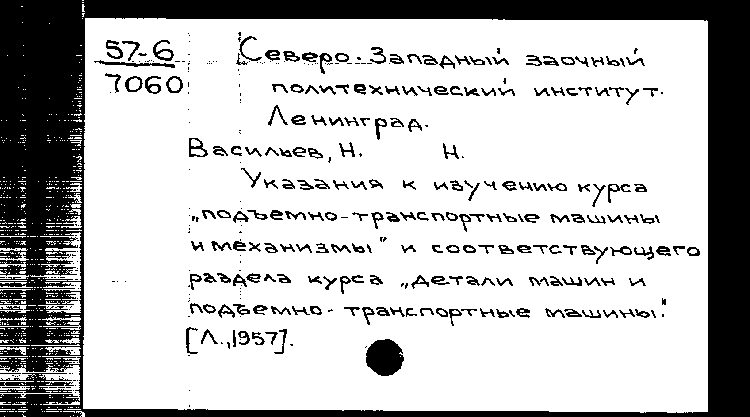 57-6
7060
Северо-Западный заочный
политехнический институт.
Ленинград.
Васильев, Н. Н.
Указания к изучению курса
„подъемно-транспортные машины
и механизмы" и соответствующего
раздела курса „детали машин и
подъемно-транспортные машины".
[Л., 1957].